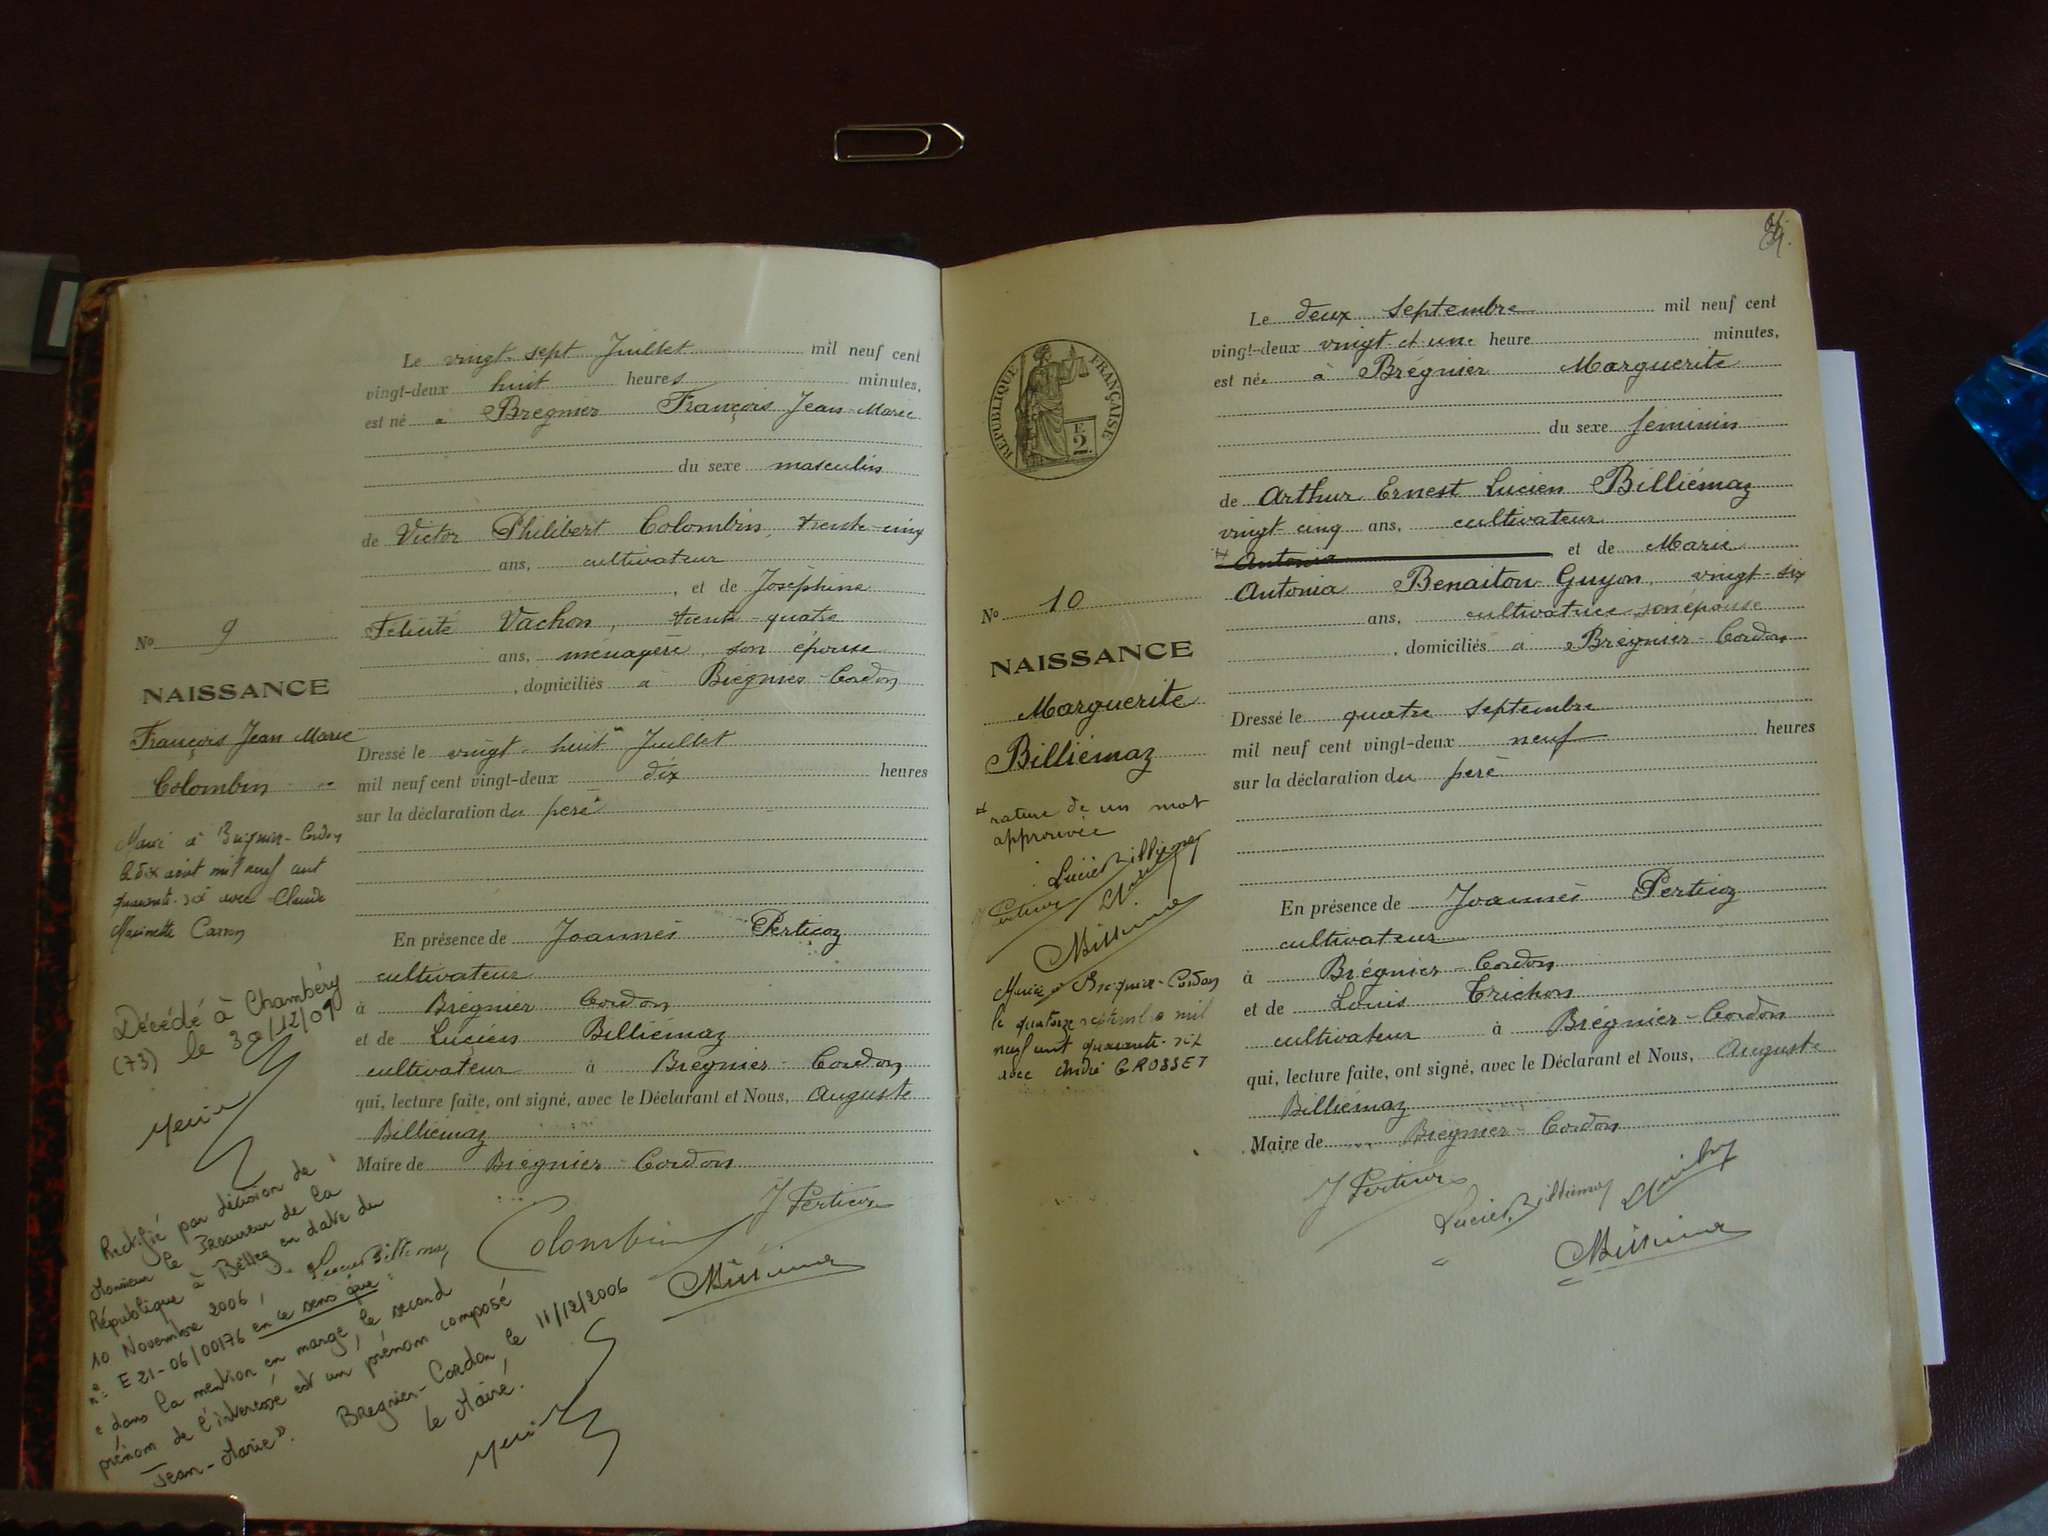 Le vingt-sept Juillet mil neuf cent
vingt-deux huit heures minutes,
est né à Brégnier François Jean-Marie
du sexe masculin
de Victor Philibert Colombin, trente-cinq
ans, cultivateur
, et de Joséphine
Félicité Vachon, trente-quatre
ans, ménagère, son épouse
, domiciliés à Brégnier-Cordon
Dressé le vingt-huit Juillet
mil neuf cent vingt-deux dix heures
sur la déclaration du père
En présence de Joannès Perticoz
cultivateur
à Brégnier Cordon
et de Lucien Billiémaz
cultivateur à Brégnier-Cordon
qui, lecture faite, ont signé, avec le Déclarant et Nous, Auguste
Billiémaz
Maire de Brégnier-Cordon
J Perticoz
Colombin
Lucien Billiemaz
No 9
NAISSANCE
François Jean Marie
Colombin
Marié à Brégnier-Cordon
le dix août mil neuf cent
quarante-six avec Claude
Marinette
Décédé à Chambéry
(73) le 30/12/09
Rectifié par décision de
Monsieur le Procureur de la
République à Belley en date du
10 Novembre 2006,
n° E 21-06/00176 en ce sens que :
« dans la mention en marge, le second
prénom de l'intéressé est un prénom composé
Jean-Marie ». Bregnier-Cordon, le 11/12/2006
le Maire.
Le deux Septembre mil neuf cent
vingt-deux vingt et une heure minutes,
est née à Brégnier Marguerite
du sexe féminin
de Arthur Ernest Lucien Billiémaz
vingt-cinq ans, cultivateur
Antonia , et de Marie
Antonia Benaiton-Guyon, vingt-six
ans, cultivatrice son épouse
, domiciliés à Brégnier-Cordon
Dressé le quatre septembre
mil neuf cent vingt-deux neuf heures
sur la déclaration du père
En présence de Joannès Perticoz
cultivateur
à Brégnier-Cordon
et de Louis Trichon
cultivateur à Brégnier-Cordon
qui, lecture faite, ont signé, avec le Déclarant et Nous, Auguste
Billiémaz
Maire de Brégnier-Cordon
J Perticoz
Lucien Billiemaz
RÉPUBLIQUE FRANÇAISE
E
2.
No 10
NAISSANCE
Marguerite
Billiémaz
rature de un mot
approuvée
Lucien Billiemaz
Perticoz
Mariée à Brégnier-Cordon
le quatorze septembre mil
neuf cent quarante-six
avec André GROSSET